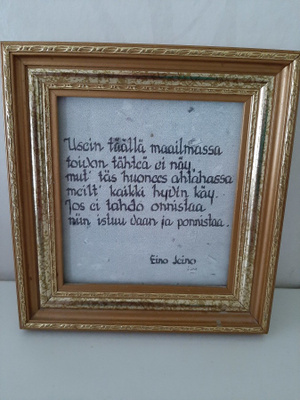 Usein täällä maailmassa
toivon tähteä ei näy,
mut' täs huonees ahtahassa
meilt' kaikki hyvin käy.
Jos ei tahdo onnistaa
niin istuu vaan ja ponnistaa.
Eino Leino